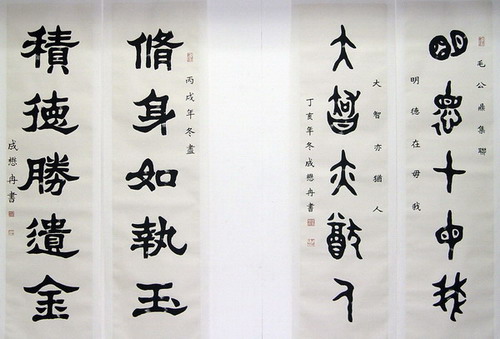 毛公鼎集聯
明德在毋我
明德在毋我
大智亦猶人
大智亦猶人
丁亥年冬成懋冉書
丙戌年冬盡
脩身如執玉
積德勝遺金
成懋冉書